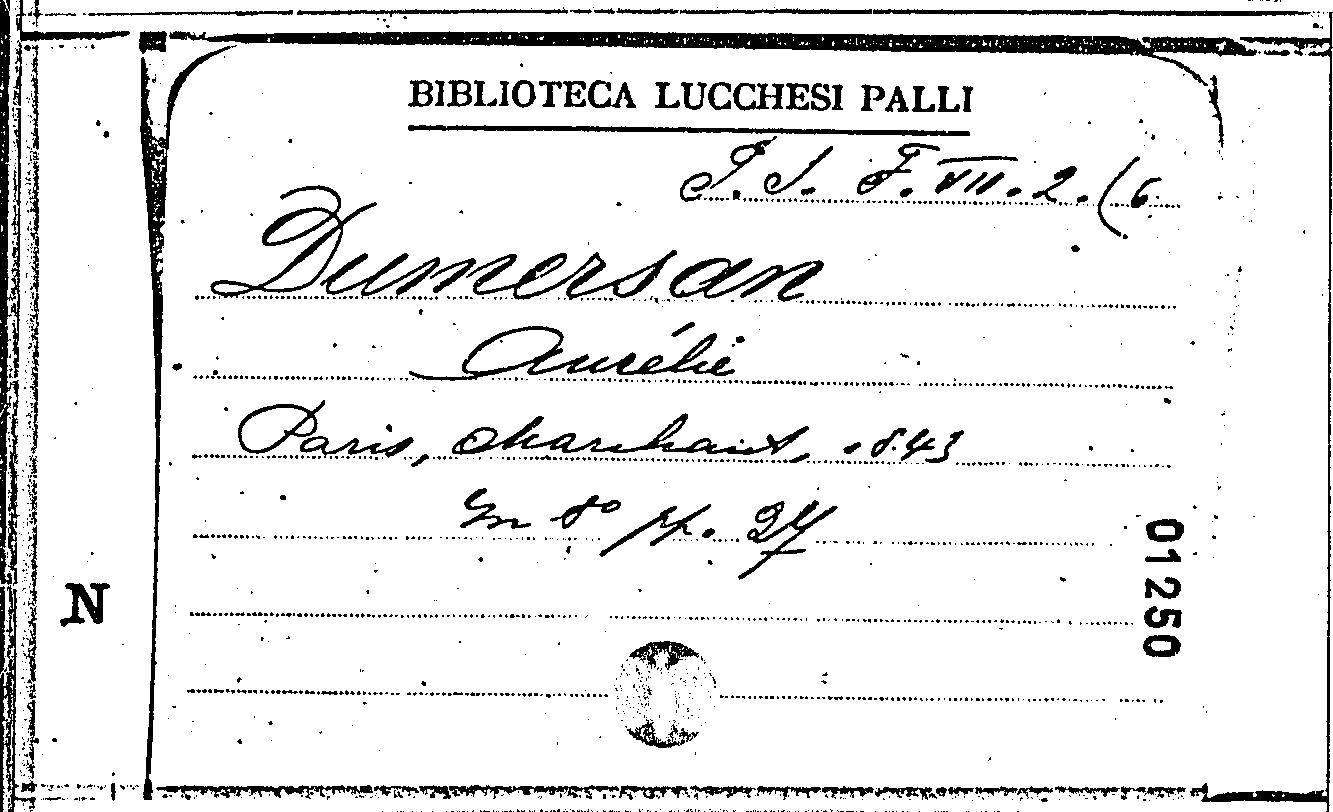 BIBLIOTECA LUCCHESI PALLI
F. VII. 2. (6
Dumersan
Aurélie
Paris, Marchant, 1843
in 8° pp. 27
N
01250